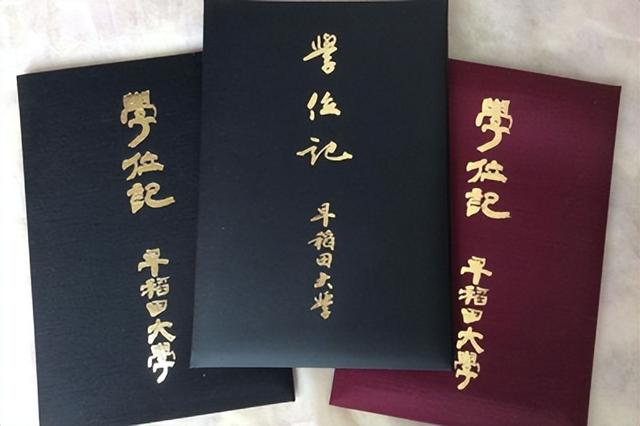 學位記
早稲田大學
學位記
早稲田大學
學位記
早稲田大學